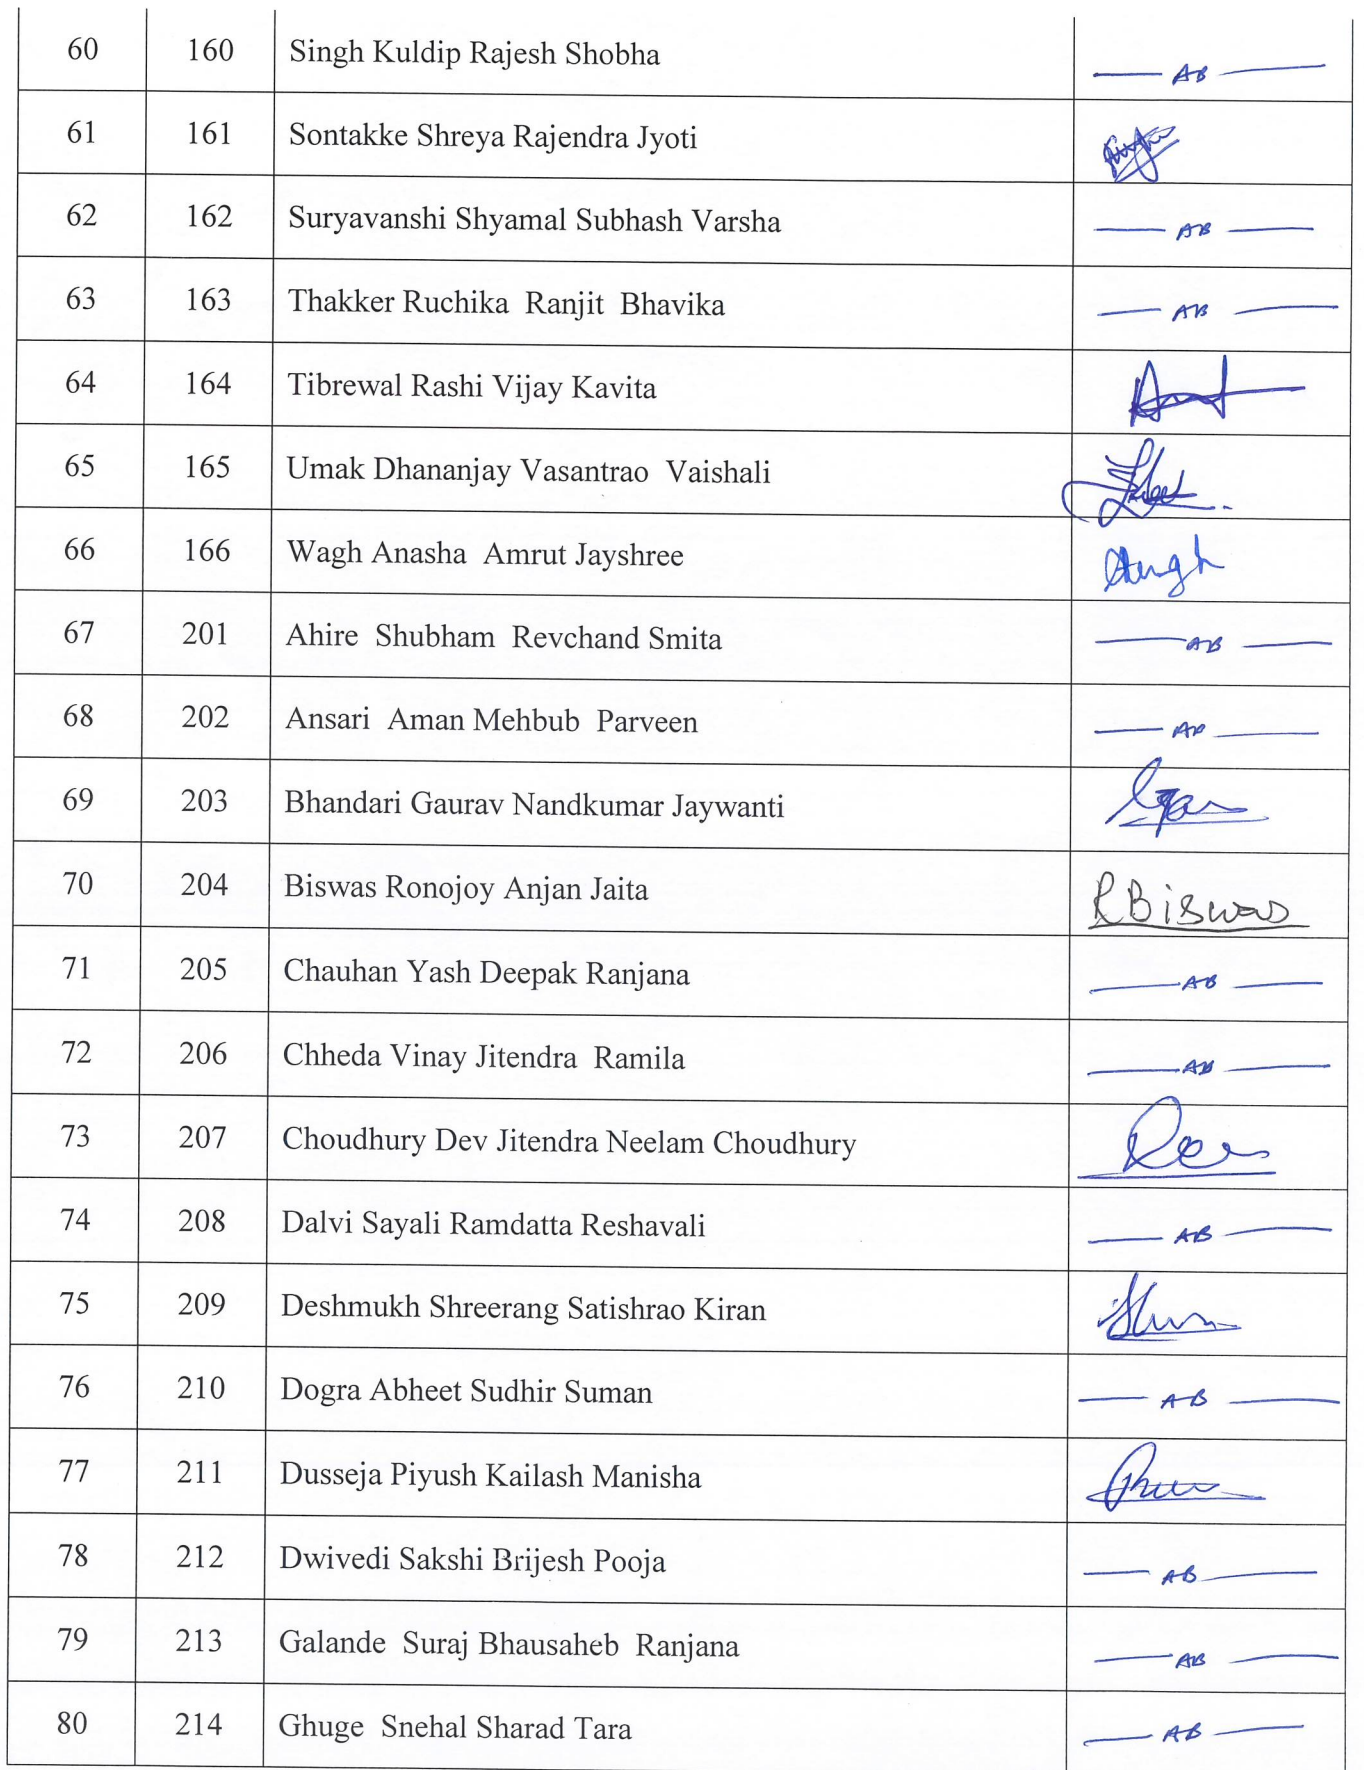 60 160 Singh Kuldip Rajesh Shobha — AB —
61 161 Sontakke Shreya Rajendra Jyoti
62 162 Suryavanshi Shyamal Subhash Varsha — AB —
63 163 Thakker Ruchika Ranjit Bhavika — AB —
64 164 Tibrewal Rashi Vijay Kavita
65 165 Umak Dhananjay Vasantrao Vaishali
66 166 Wagh Anasha Amrut Jayshree
67 201 Ahire Shubham Revchand Smita — AB —
68 202 Ansari Aman Mehbub Parveen — AB —
69 203 Bhandari Gaurav Nandkumar Jaywanti
70 204 Biswas Ronojoy Anjan Jaita RBiswas
71 205 Chauhan Yash Deepak Ranjana — AB —
72 206 Chheda Vinay Jitendra Ramila — AB —
73 207 Choudhury Dev Jitendra Neelam Choudhury
74 208 Dalvi Sayali Ramdatta Reshavali — AB —
75 209 Deshmukh Shreerang Satishrao Kiran
76 210 Dogra Abheet Sudhir Suman — AB —
77 211 Dusseja Piyush Kailash Manisha
78 212 Dwivedi Sakshi Brijesh Pooja — AB —
79 213 Galande Suraj Bhausaheb Ranjana — AB —
80 214 Ghuge Snehal Sharad Tara — AB —